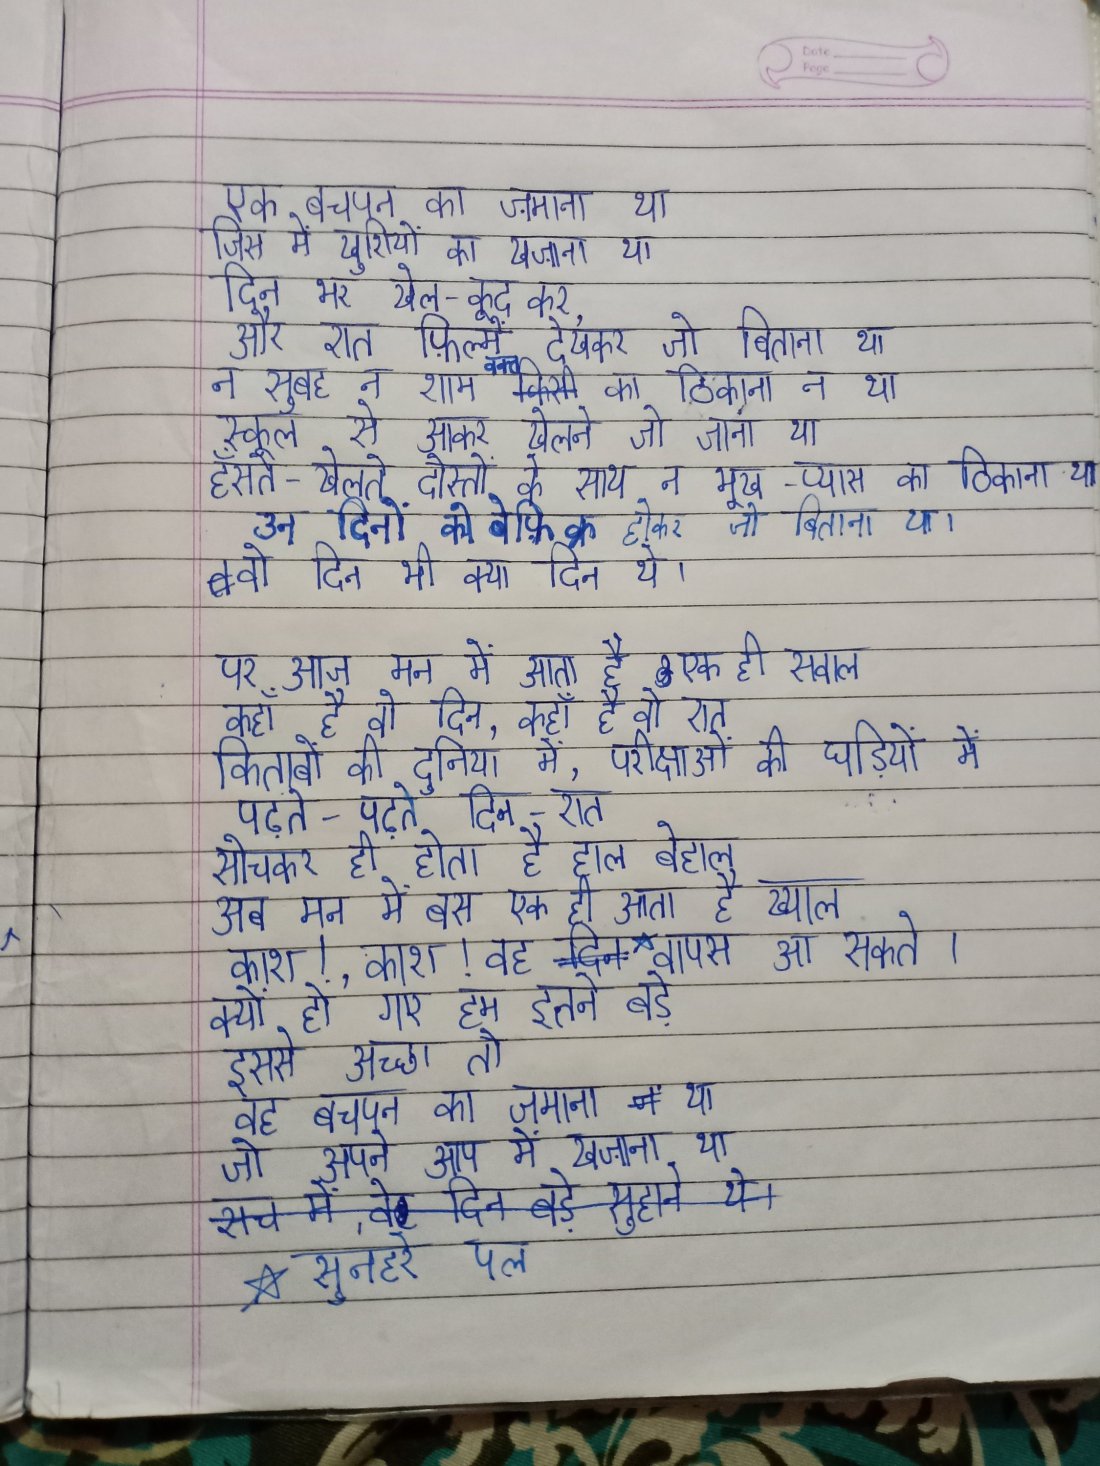 Date
Page
एक बचपन का ज़माना था
जिस में खुशियों का खज़ाना था
दिन भर खेल-कूद कर,
और रात फ़िल्में देखकर जो बिताना था
वक्त
न सुबह न शाम किसी का ठिकाना न था
स्कूल से आकर खेलने जो जाना था
हँसते-खेलते दोस्तों के साथ न भूख-प्यास का ठिकाना था
उन दिनों को बेफ़िक्र होकर जो बिताना था।
वो दिन भी क्या दिन थे।
पर आज मन में आता है एक ही सवाल
कहाँ है वो दिन, कहाँ है वो रात
किताबों की दुनिया में, परीक्षाओं की घड़ियों में
पढ़ते-पढ़ते दिन-रात
सोचकर ही होता है हाल बेहाल
अब मन में बस एक ही आता है ख्याल
काश!, काश! वह दिन* वापस आ सकते।
क्यों हो गए हम इतने बड़े
इससे अच्छा तो
वह बचपन का ज़माना न था
जो अपने आप में खज़ाना था
सच में, वे दिन बड़े सुहाने थे।
☆ सुनहरे पल